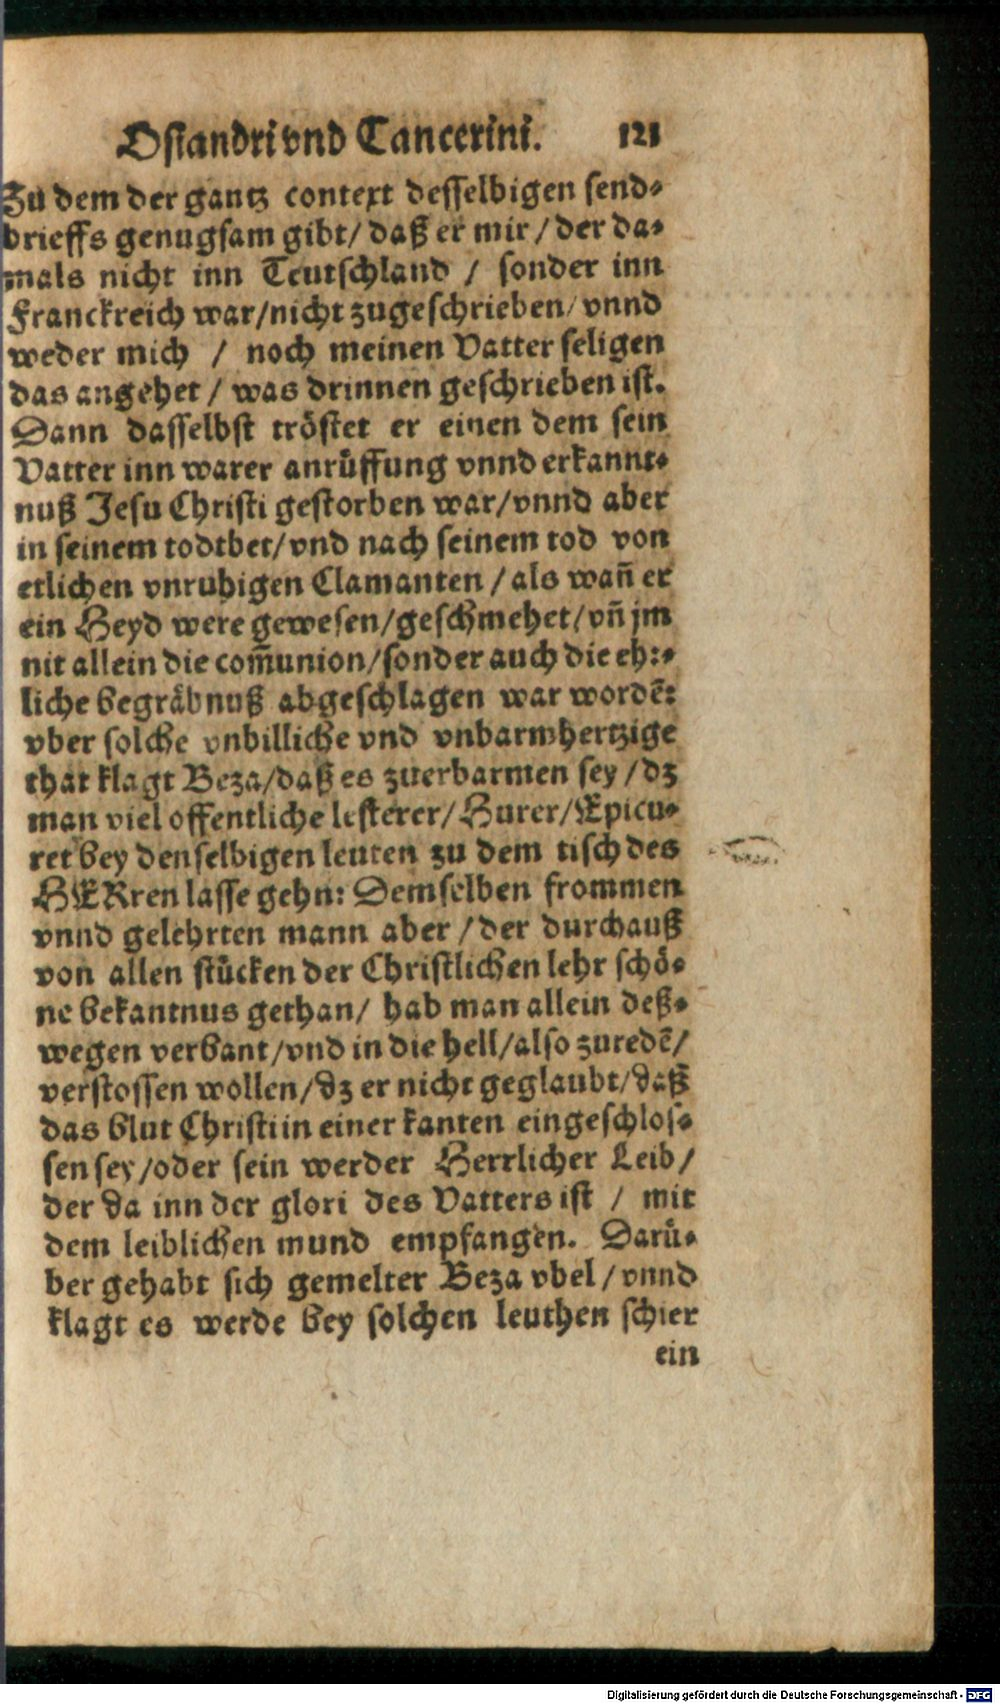 Osiandri vnd Tancerini. 121
Zu dem der gantz context desselbigen send⸗
brieffs genugsam gibt/ daß er mir / der da⸗
mals nicht inn Teutschland / sonder inn
Franckreich war/nicht zugeschrieben/ vnnd
weder mich / noch meinen Vatter seligen
das angehet / was drinnen geschrieben ist.
Dann dasselbst tröstet er einen dem sein
Vatter inn warer anrüffung vnnd erkannt⸗
nuß Jesu Christi gestorben war/vnnd aber
in seinem todtbet/vnd nach seinem tod von
etlichen vnruhigen Clamanten / als wañ er
ein Heyd were gewesen/geschmehet/vñ jm
nit allein die com̃union/sonder auch die eh:⸗
liche begräbnuß abgeschlagen war wordẽ:
vber solche vnbilliche vnd vnbarmhertzige
that klagt Beza/daß es zuerbarmen sey / dz
man viel offentliche lesterer/Hurer/Epicu⸗
rer bey denselbigen leuten zu dem tisch des
HERren lasse gehn: Demselben frommen
vnnd gelehrten mann aber / der durchauß
von allen stücken der Christlichen lehr schö⸗
ne bekantnus gethan/ hab man allein deß⸗
wegen verbant/vnd in die hell/also zuredẽ/
verstossen wollen/dz er nicht geglaubt/daß
das blut Christi in einer kanten eingeschlos⸗
sen sey/oder sein werder Herrlicher Leib/
der da inn der glori des Vatters ist / mit
dem leiblichen mund empfangen. Darü⸗
ber gehabt sich gemelter Beza vbel / vnnd
klagt es werde bey solchen leuthen schier
ein
Digitalisierung gefördert durch die Deutsche Forschungsgemeinschaft - DFG